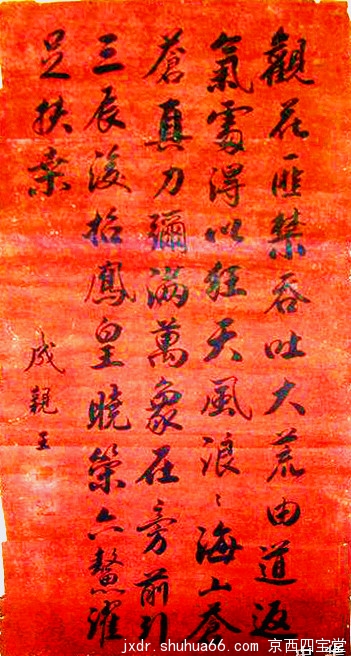 觀花匪禁吞吐大荒由道返
氣處得以狂天風浪〻海山蒼
蒼真力彌滿萬象在旁前引
三辰後招鳳皇曉策六鰲濯
足扶桑
成親王
jxdr.shuhua66.com 京西四宝堂